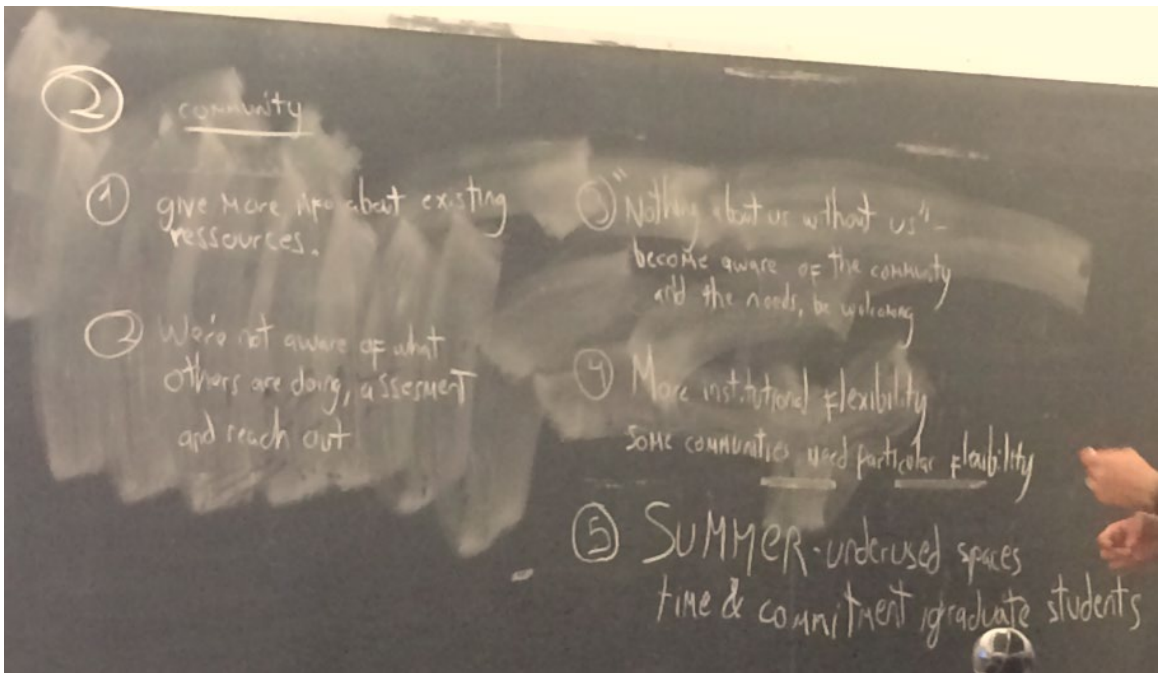 ②
community
① give more info about existing
ressources.
② We're not aware of what
others are doing, assesment
and reach out
③ "Nothing about us without us" -
become aware of the community
and the needs, be welcoming
④ More institutional flexibility
some communities need particular flexibility
⑤ SUMMER - underused spaces
time & commitment, graduate students